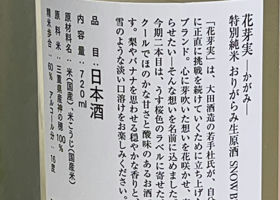 花芽実 ―かがみ―
特別純米 おりがらみ生原酒 SNOW B
「花芽実」は、大田酒造の若手杜氏が、自分
に正直に挑戦を続けていくために立ち上げ
ブランド。心に芽吹いた想いを花咲かせ、実
らせたい―そんな想いを名前に込めました。
今期二本目は、うす桜色のラベルに寄せた
クールでほのかな甘さと酸味のあるお酒
す。梨やバナナを思わせる穏やかな香りと、
雪のような淡い口溶けをお楽しみください。
品目：日本酒
内容量：720ml
原材料名：米(国産)、米こうじ(国産米)
原料米：三重県産神の穂100%
精米歩合：60% アルコール分：16度